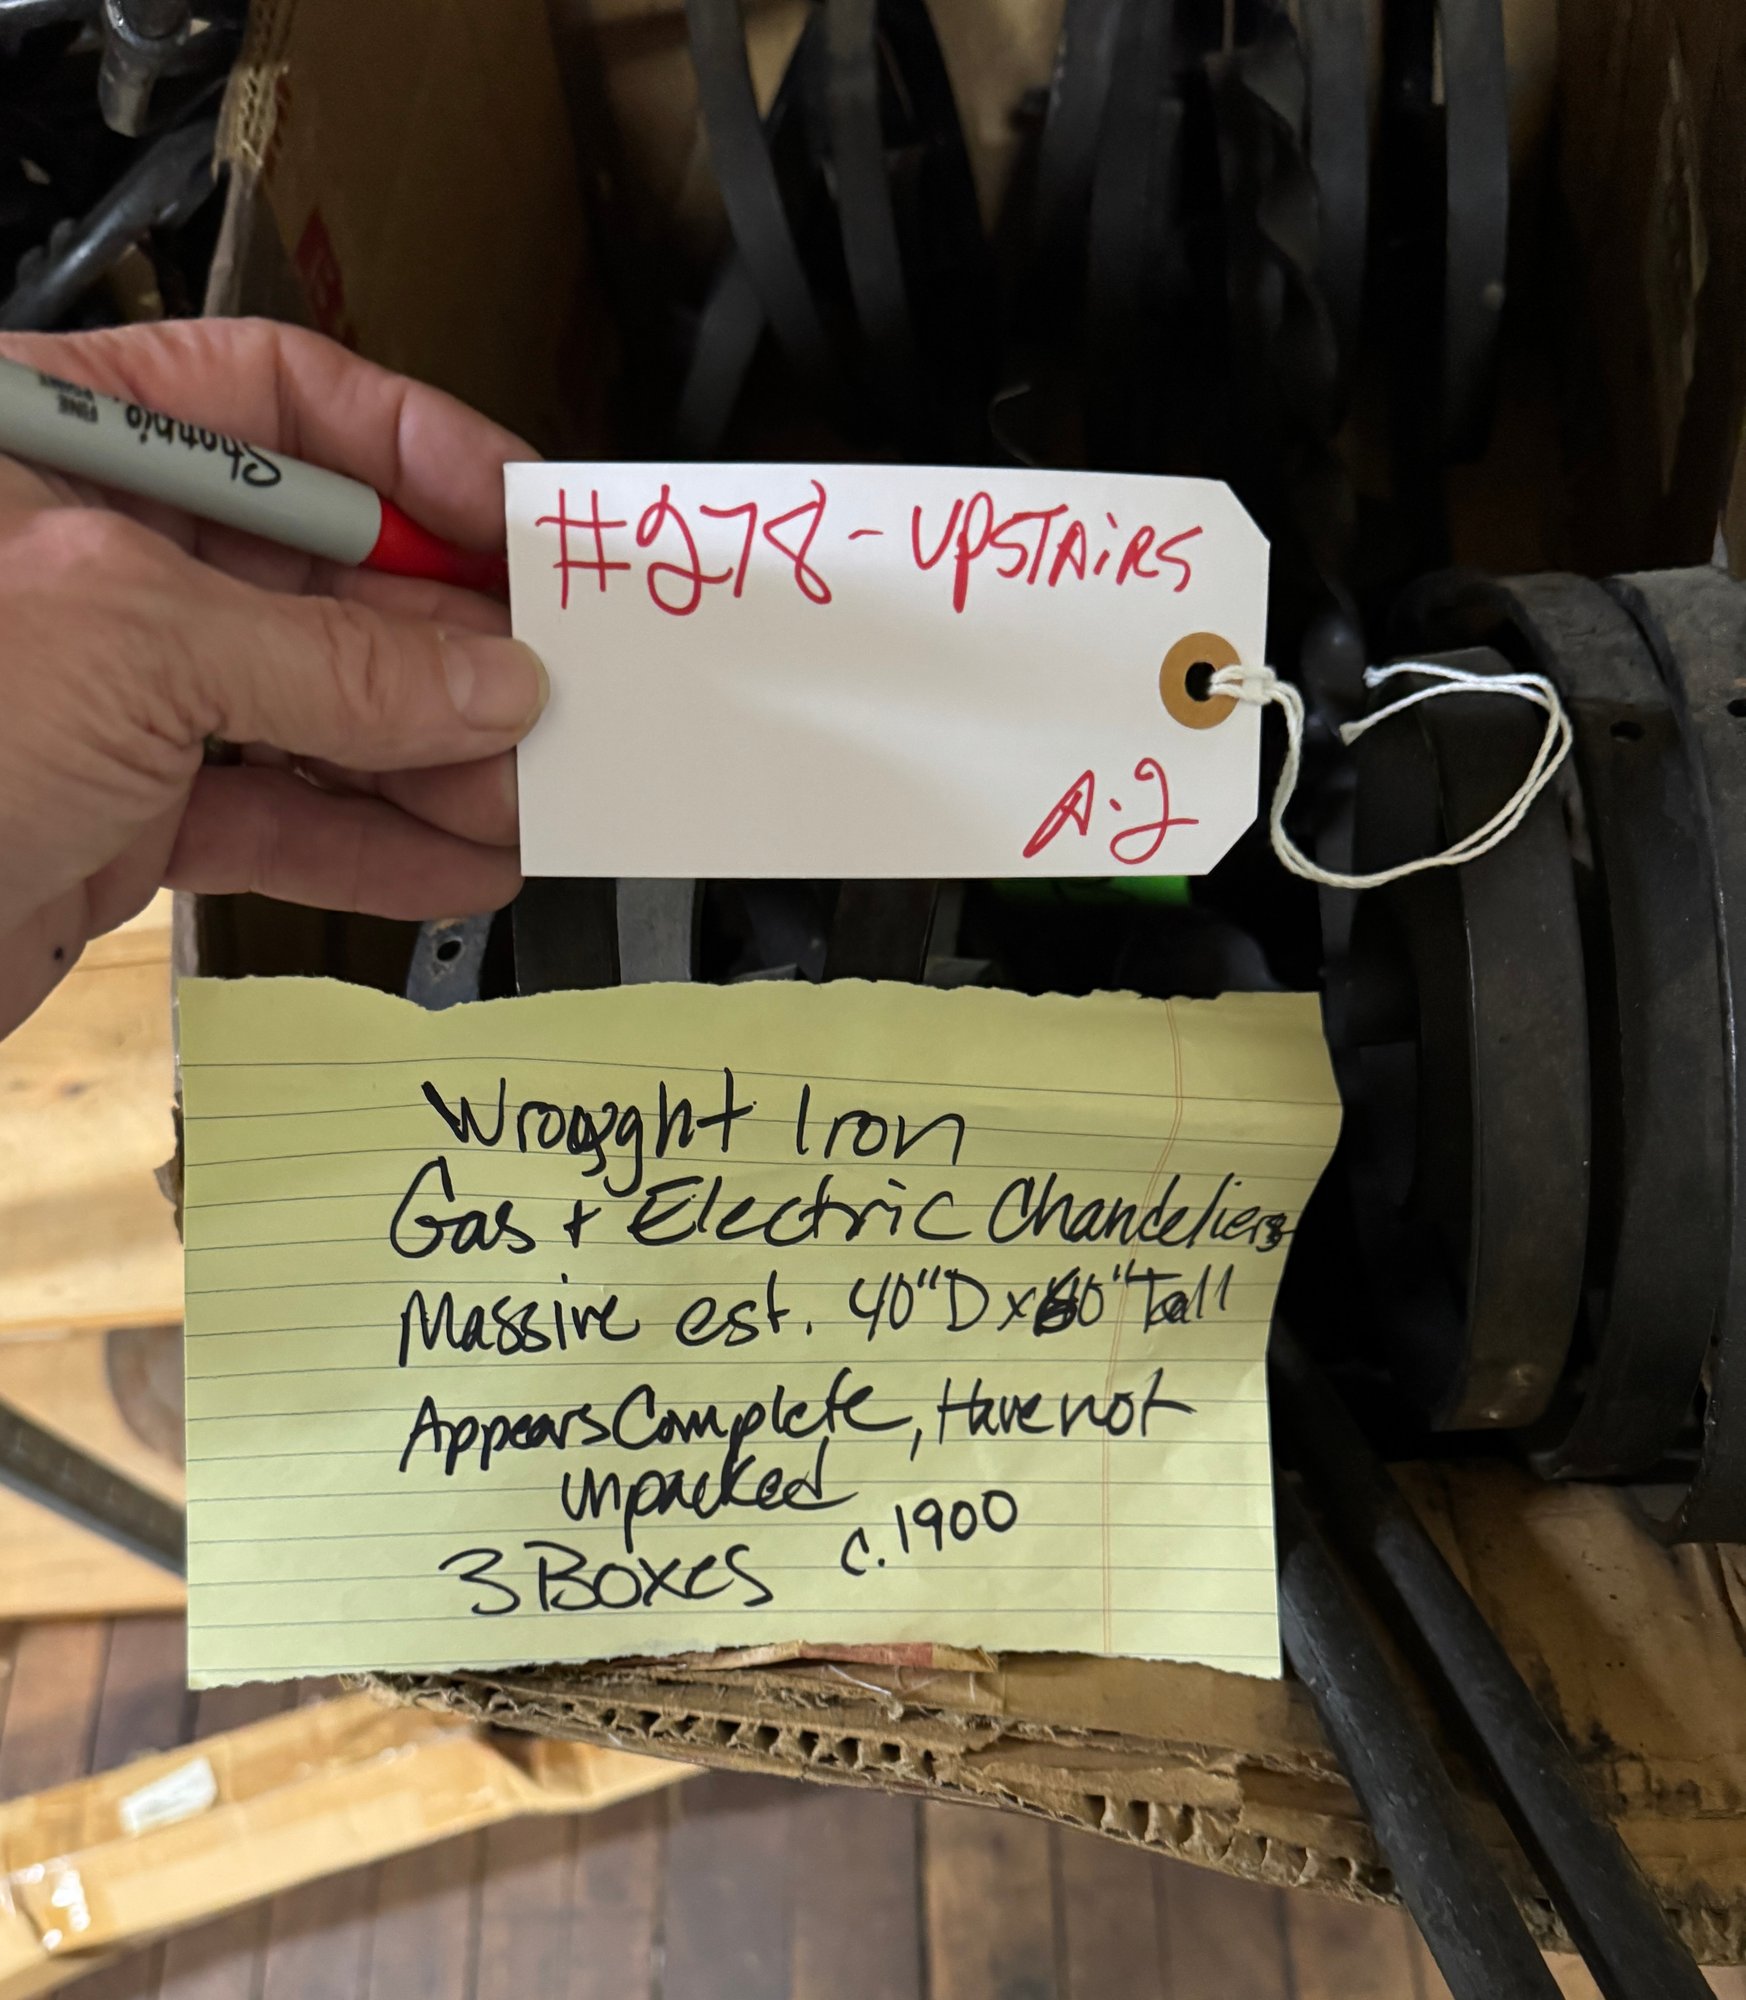 Sharpie
FINE POINT
#278 - UPSTAiRS
A.J
Wrought Iron
Gas + Electric Chandeliers
Massive est. 40"D x 60" Tall
Appears Complete, Have not
unpacked
3 Boxes c.1900